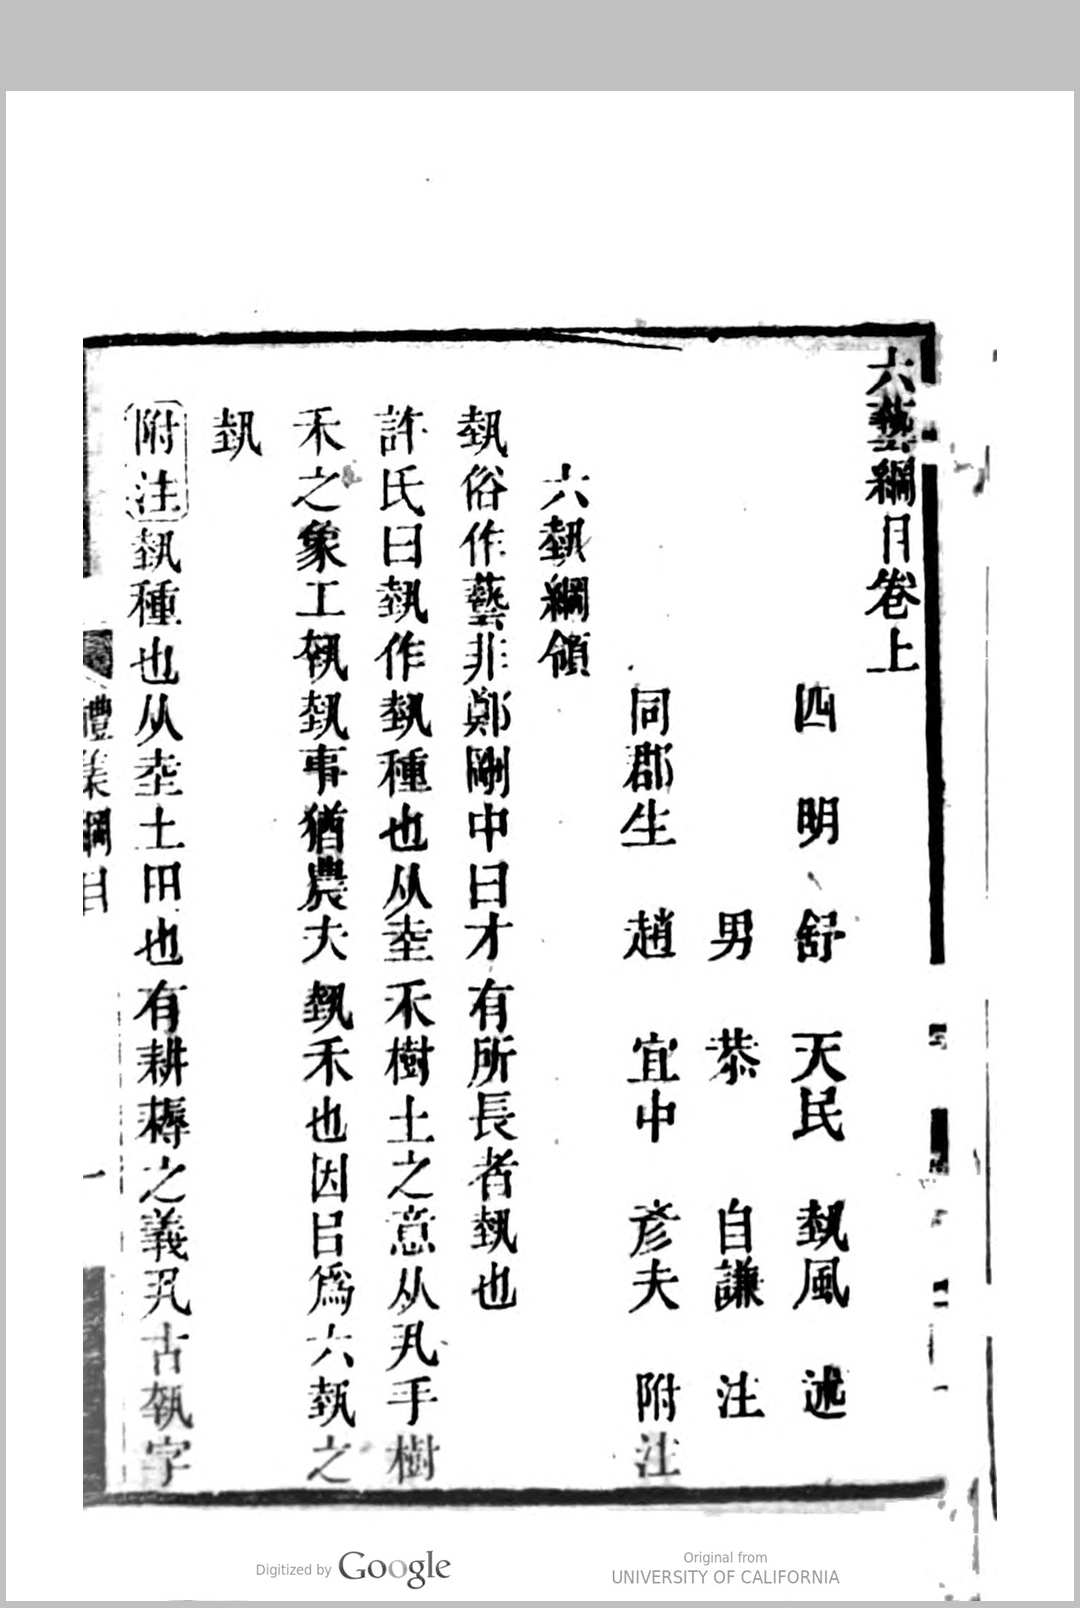 六藝綱目卷上
四明 舒 天民 埶風 述
男 恭 自謙 注
同郡生 趙 宜中 彦夫 附注
六埶綱領
埶俗作藝非鄭剛中曰才有所長者埶也
許氏曰埶作埶種也从坴禾樹土之意从丮手樹
禾之象工執埶事猶農夫埶禾也因㠯爲六埶之
埶
附注埶種也从坴土田也有耕耨之義丮古執字
禮 綱目
一
Digitized by Google
Original from
UNIVERSITY OF CALIFORNIA